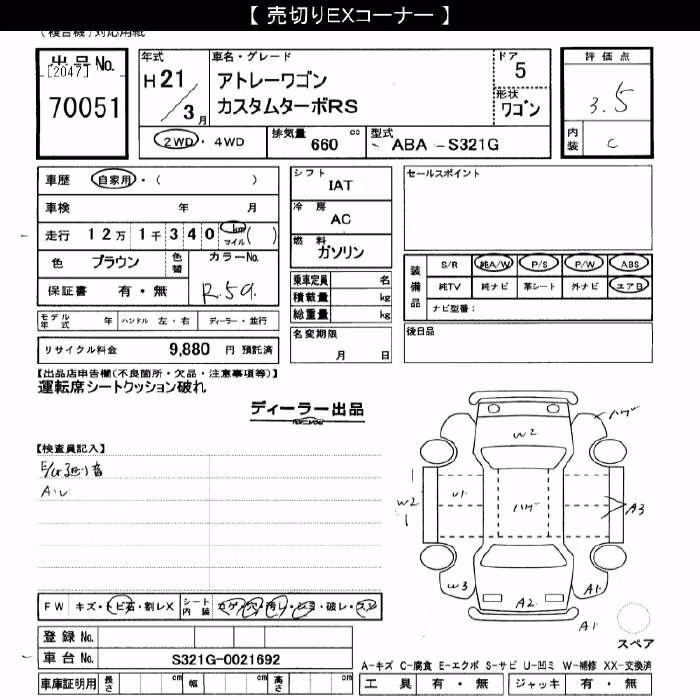 【 売切りEXコーナー 】
(複合機)対応用紙
出品 No.
[2047]
70051
年式
H 21 / 3 月
車名・グレード
アトレーワゴン
カスタムターボRS
ドア
5
形状
ワゴン
評価点
3.5
内装
C
2WD ・ 4WD
排気量
660 cc
型式
ABA - S321G
車歴 自家用 ・ ( )
車検 年 月
走行 12万 1千 3 4 0 km マイル ( )
色 ブラウン 色替
カラーNo.
R.59.
保証書 有 ・ 無
モデル年式 年 ハンドル 左 ・ 右 ディーラー ・ 並行
リサイクル料金 9,880 円 預託済
シフト
IAT
冷房
AC
燃料
ガソリン
乗車定員 名
積載量 kg
総重量 kg
名変期限
月 日
セールスポイント
装備品
S/R 純A/W P/S P/W ABS
純TV 純ナビ 革シート 外ナビ エアB
ナビ型番:
後日品
【出品店申告欄(不良箇所・欠品・注意事項等)】
運転席シートクッション破れ
ディーラー出品
【検査員記入】
A・U
FW キズ・トビ石・割レX
シート内装 コゲ・穴・汚レ・シミ・破レ・スレ
登録 No.
車台 No. S321G-0021692
車庫証明用 長さ cm 幅 cm 高さ cm
ハゲ
W2
W2
U1
ハゲ
A3
W3
A2
A1
A1
スペア
A-キズ C-腐食 E-エクボ S-サビ U-凹ミ W-補修 XX-交換済
工具 有 ・ 無 ジャッキ 有 ・ 無